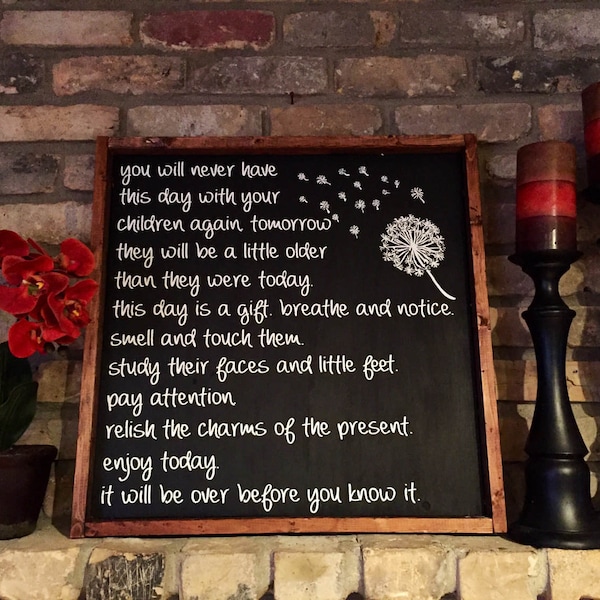 you will never have
this day with your
children again. tomorrow
they will be a little older
than they were today.
this day is a gift. breathe and notice.
smell and touch them.
study their faces and little feet.
pay attention.
relish the charms of the present.
enjoy today.
it will be over before you know it.